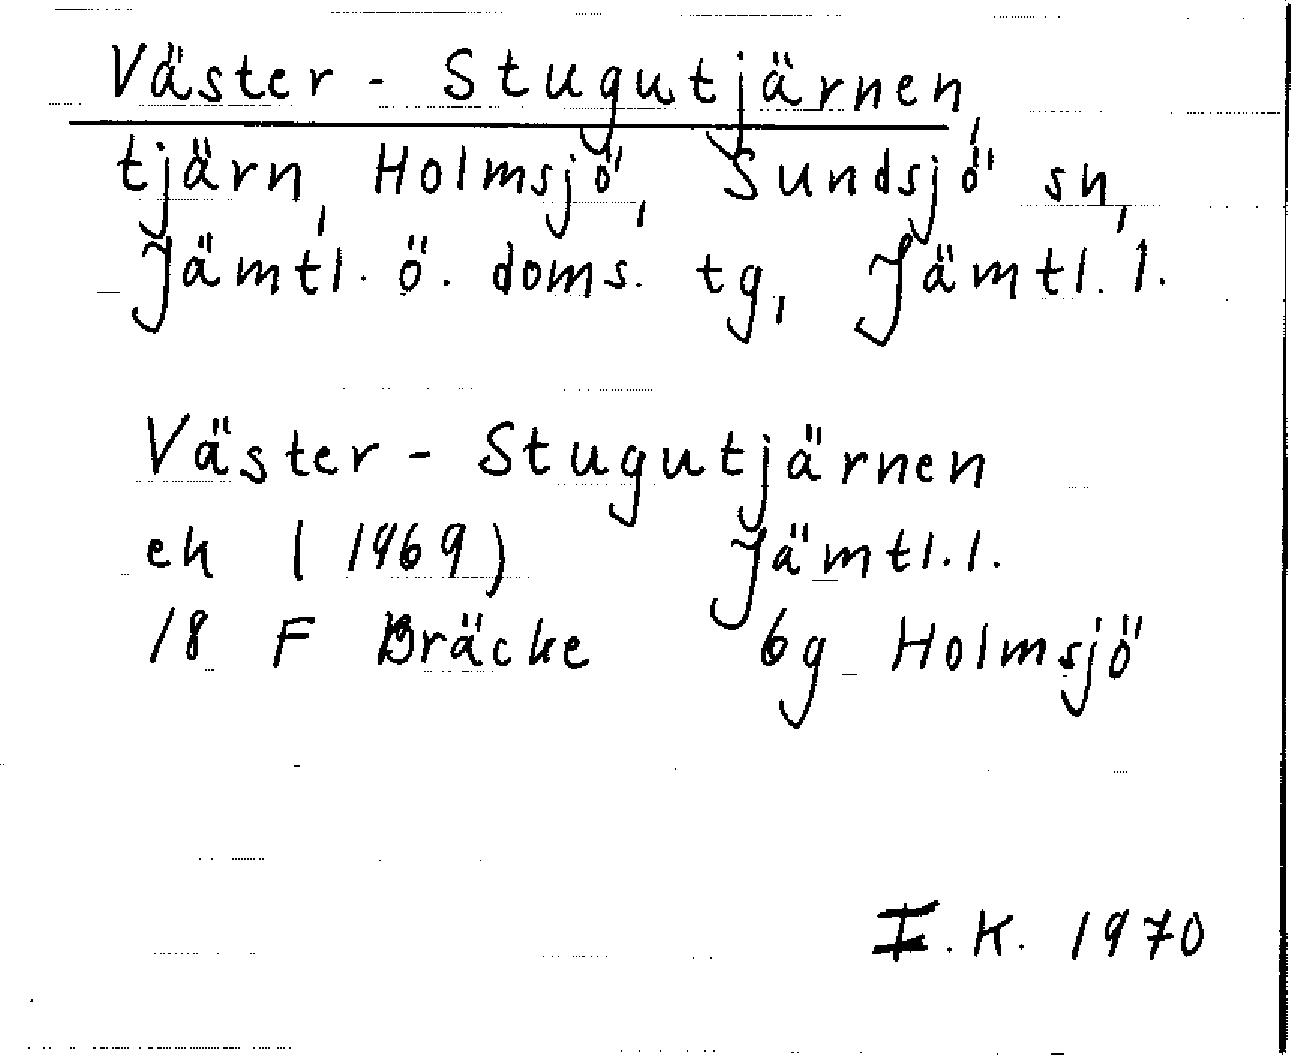 Väster - Stugutjärnen,
tjärn, Holmsjö, Sundsjö sn,
Jämtl. ö. doms. tg, Jämtl. l.
Väster - Stugutjärnen
ek (1969) Jämtl. l.
18 F Bräcke 6g Holmsjö
I. K. 1970